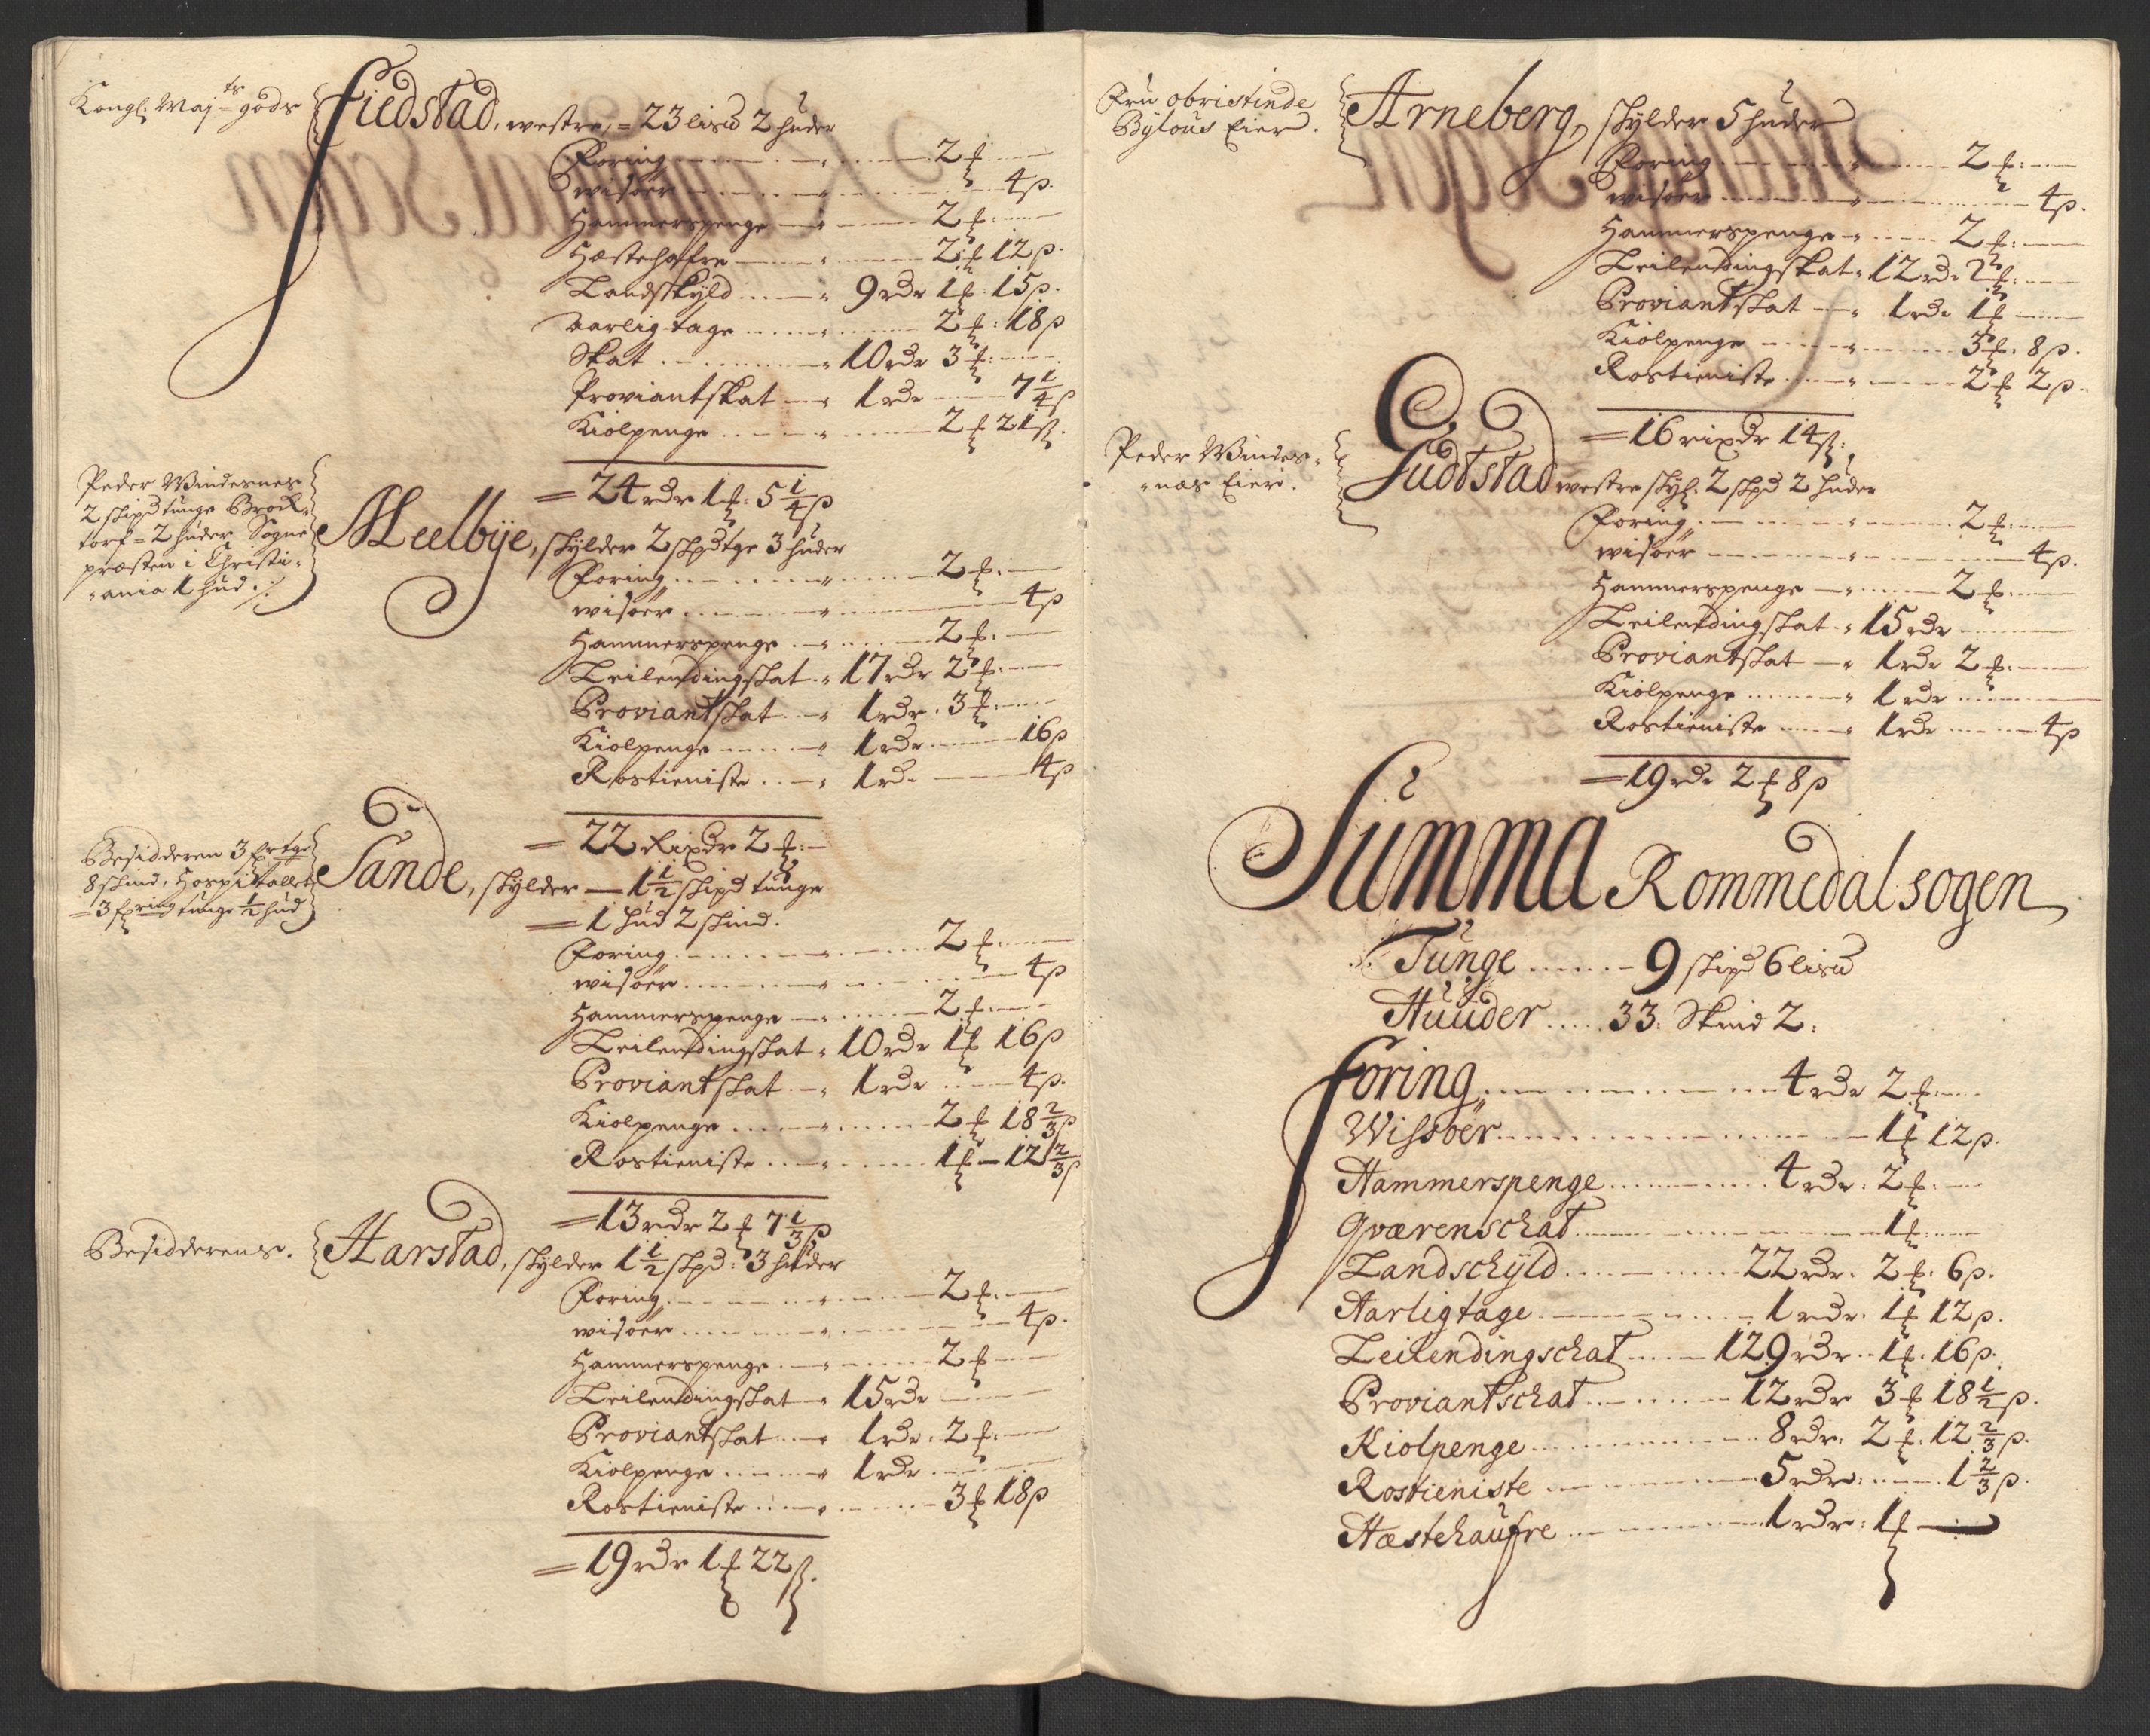 Kongl: Maj:ts gods
Fiedstad, westre, = 23 lisu 2 huder
Foring 2 f:
wisöer 4 β.
Hammerspenge 2 f:
Hæstehafre 2 f 12 β.
Landskyld 9 rdr 1 f. 15 β.
aarlig tage 2 f: 18 β
Skat 10 rdr 3 f:
Proviantskat 1 rdr 7 1/4 β
Kiolpenge 2 f 21 β.
= 24 rdr 1 f: 5 1/4 β
Peder Windesnes
2 skipd tunge Brock-
torf = 2 huder, Sogne
præsten i Christi-
-ania 1 hud ./.
Meelbÿe, skylder 2 skpd tge 3 huder
Foring 2 f:
wisöer 4 β
Hammerspenge 2 f:
Leilendingskat 17 rdr 2 f:
Proviantskat 1 rdr. 3 f:
Kiolpenge 1 rdr 16 β
Rostieniste 1 rdr 4 β
= 22 Rixdr 2 f:
Besidderen 3 frtge
8 skind, Hospitallet
= 3 fring tunge 1/2 hud
Sande, skylder 1 1/2 skipd tunge
= 1 hud 2 skind.
Foring 2 f:
wisöer 4 β
Hammerspenge 2 f:
Leilendingskat 10 rdr 1 f 16 β
Proviantskat 1 rdr 4 β.
Kiolpenge 2 f 18 2/3 β
Rostieniste 1 f 12 2/3 β
= 13 rdr 2 f 7 1/3 β
Besidderens.
Harstad, skylder 1 1/2 skpd: 3 huder
Foring 2 f:
wisöer 4 β.
Hammerspenge 2 f
Leilendingskat 15 rdr
Proviantskat 1 rdr. 2 f:
Kiolpenge 1 rdr
Rostieniste 3 f 18 β
= 19 rdr 1 f 22 β.
Fru obristinde
Bylous Eier.
Arneberg, skylder 5 huder
Foring 2 f:
wisöer 4 β.
Hammerspenge 2 f:
Leilendingskat 12 rdr 2 f:
Proviantskat 1 rdr 1 f
Kiolpenge 3 f. 8 β.
Rostieniste 2 f 2 β.
= 16 rixdr 14 β:
Peder Windes-
-næs Eier.
Gudtstad westre skyl: 2 skpd 2 huder
Foring 2 f:
wisöer 4 β.
Hammerspenge 2 f.
Leilendingskat 15 rdr
Proviantskat 1 rdr 2 f:
Kiolpenge 1 rdr
Rostieniste 1 rdr 4 β
= 19 rdr 2 f 8 β
Summa Rommedal sogen
Tunge 9 skipd 6 lisu
Huuder 33: Skind 2:
Foring 4 rdr 2 f:
Wissöer 1 f 12 β.
Hammerspenge 4 rdr. 2 f:
Qværenschat 1 f:
Landschÿld 22 rdr. 2 f: 6 β.
Aarligtage 1 rdr. 1 f 12 β.
Leilendingschat 129 rdr 1 f. 16 β.
Proviantschat 12 rdr 3 f 18 1/2 β.
Kiolpenge 8 rdr: 2 f. 12 2/3 β.
Rostieniste 5 rdr: 1 2/3 β.
Hæstehaufre 1 rdr: 1 f